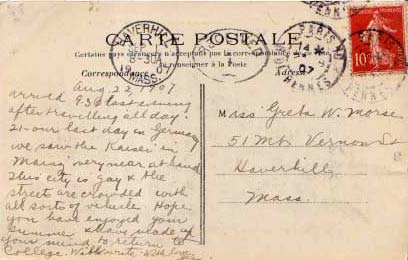 CARTE POSTALE
Certains pays étrangers n'acceptent pas la correspondance de ce côté
se renseigner à la Poste
Correspondance
Adresse
HAVERHILL
MASS.
PARIS
10c
Aug. 22, 1907
arrived 9.30 last evening
after travelling all day.
21 - our last day in Germany
we saw the Kaiser in
Mainz very near at hand
This city is gay & the
street are crowded with
all sorts of vehicle. Hope
you have enjoyed your
summer & have made up
your mind to return to
College. Will write
Miss Greta W. Morse
51 Mt. Vernon St
Haverhill
Mass.